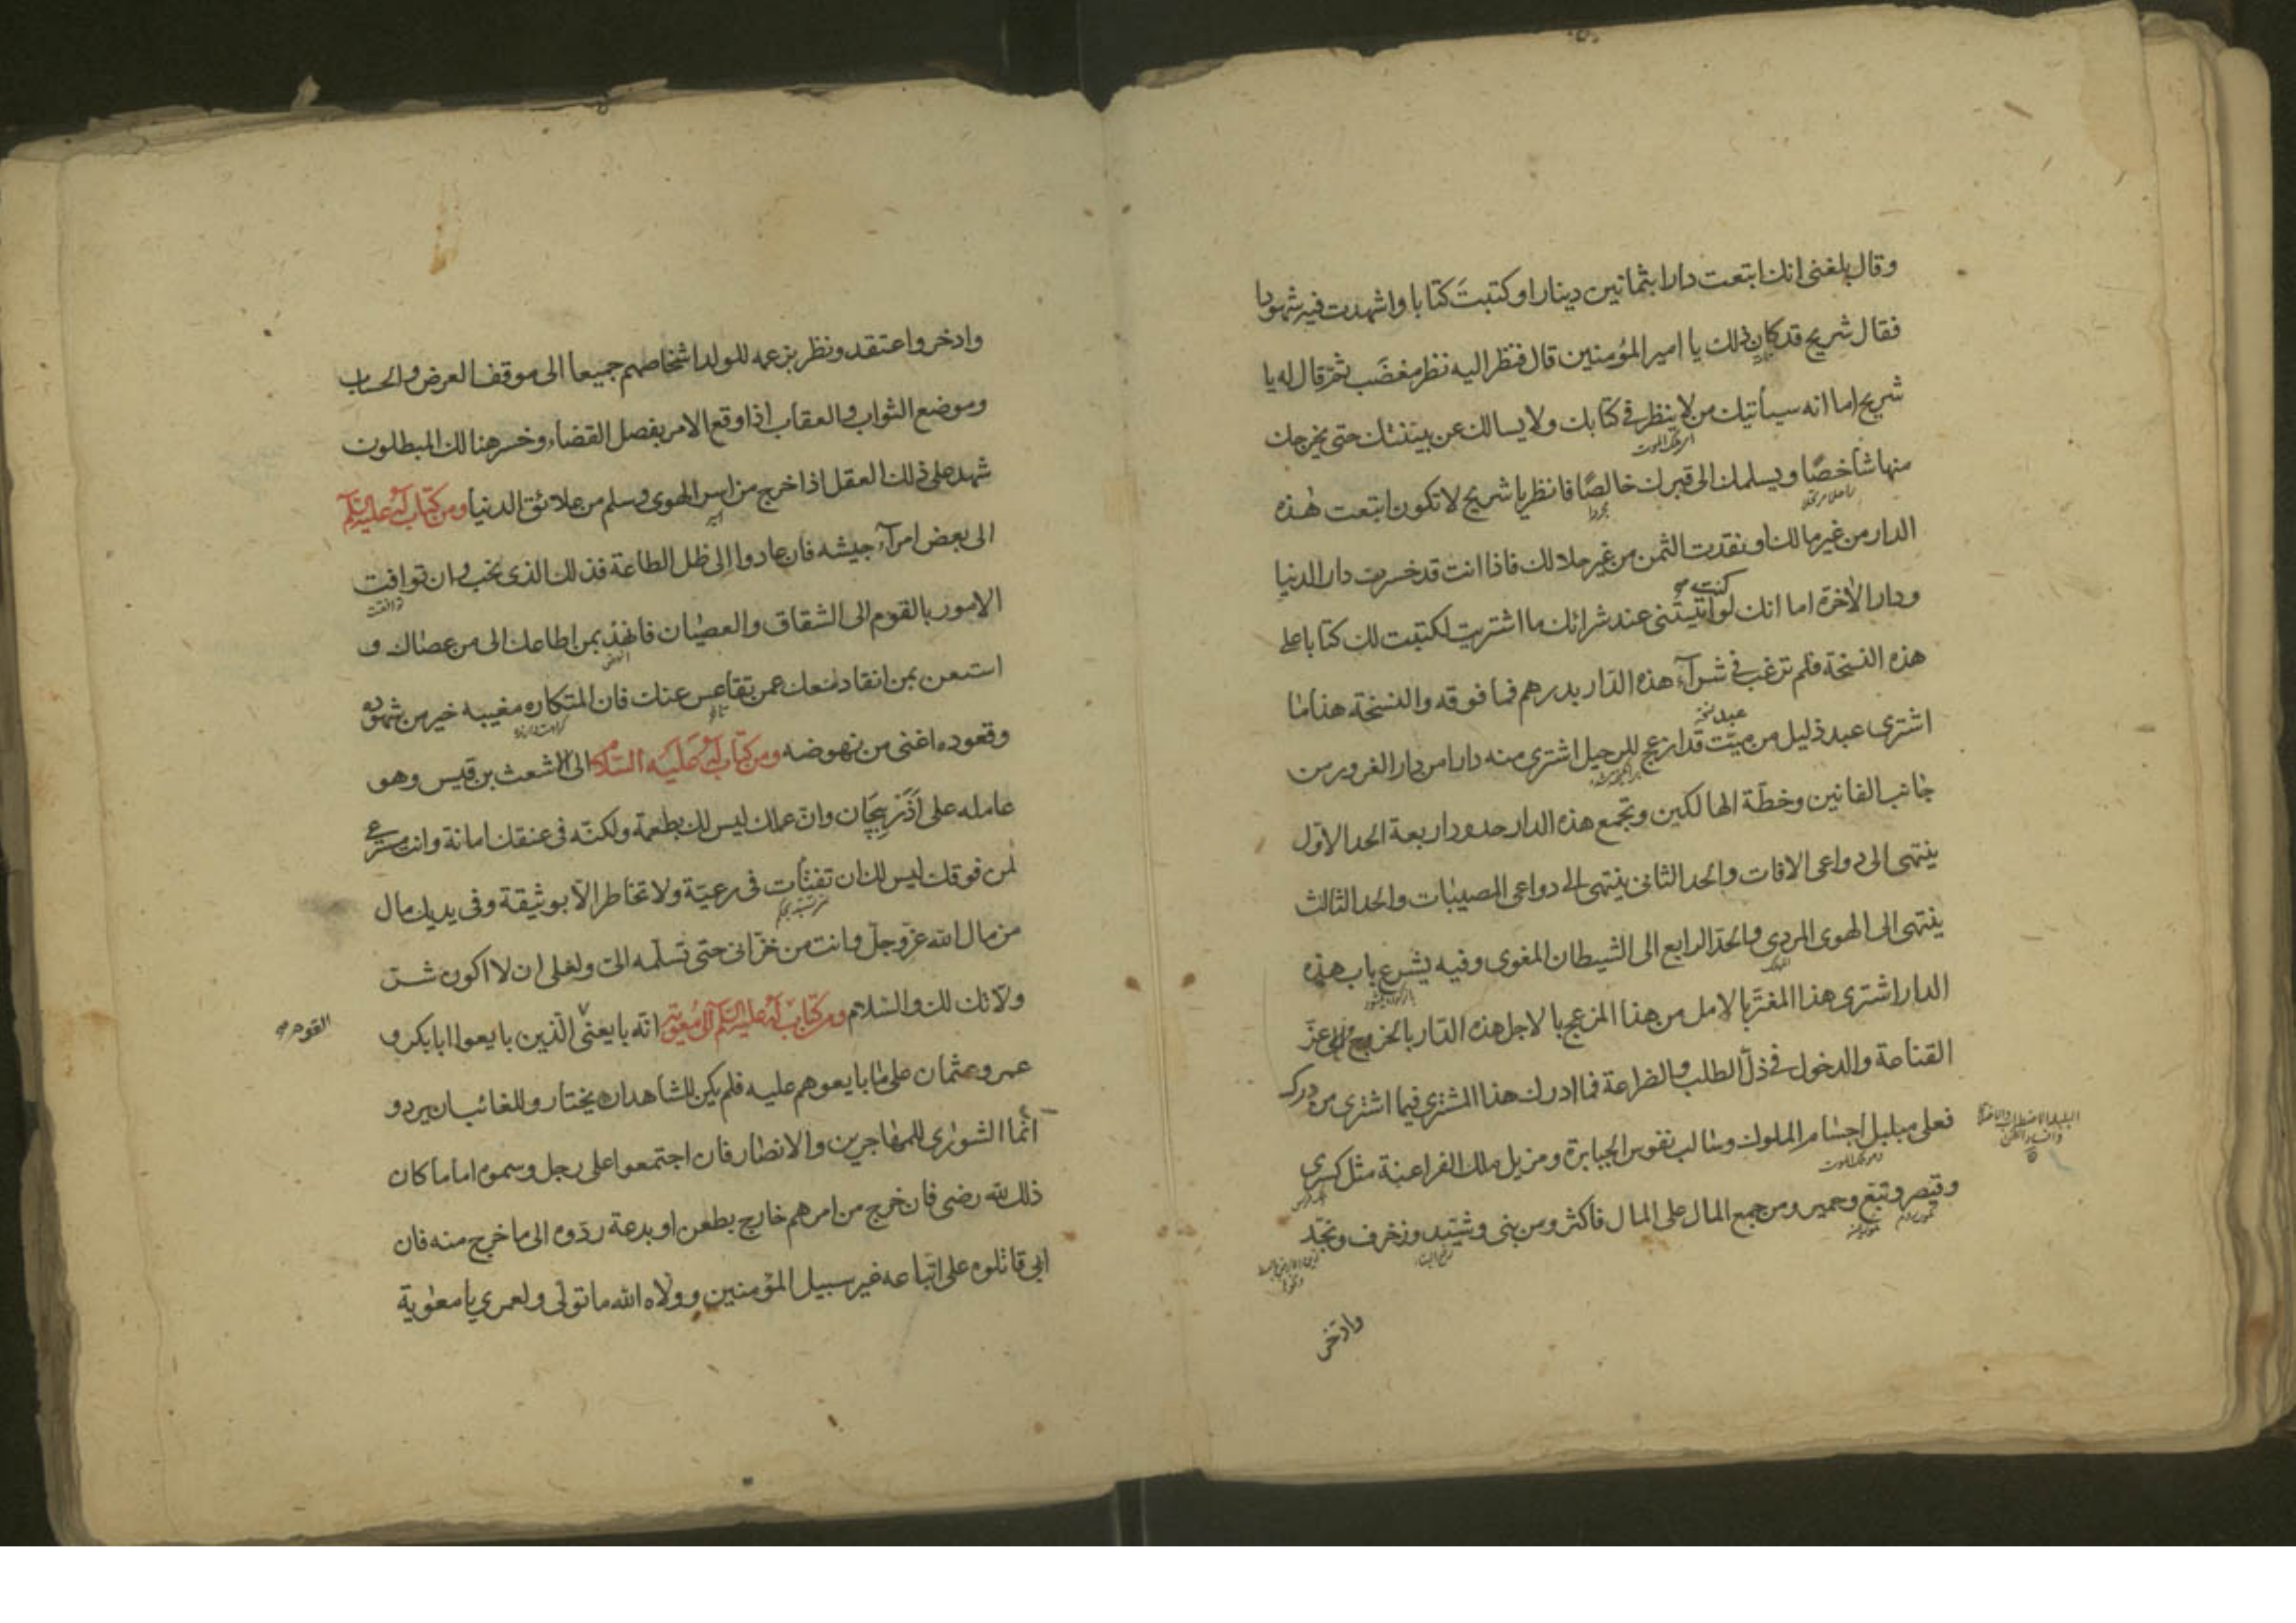 وقال بلغنی انك ابتعت دارا بثمانین دینارا وكتبتَ كتابا واشهدت فیه شهودا
فقال شریح قد كان ذلك یا امیر المؤمنین قال فنظر الیه نظر مغضَب ثمّ قال له یا
شریح اما انه سیأتیك من لا ینظر فی كتابك ولا یسالك عن بینتك حتی یخرجك
ای ملك الموت
منها شاخصًا ویسلمك الی قبرك خالصًا فانظر یا شریح لا تكون ابتعت هذه
مجردا
الدار من غیر مالك او نقدت الثمن من غیر حلالك فاذا انت قد خسرت دار الدنیا
كنت
ودار الاٰخرة اما انك لو اتیتنی عند شرائك ما اشتریت لكتبت لك كتابا علی
هذه النسخة فلم ترغب فی شرآء هذه الدار بدرهم فما فوقه والنسخة هذا ما
عبد نخه
اشتری عبد ذلیل من میّت قد ازعج للرحیل اشتری منه دارا من دار الغرور من
جانب الفانین وخطّة الهالكین وتجمع هذه الدار حدود اربعة الحد الاوّل
ینتهی الی دواعی الافات والحد الثانی ینتهی الی دواعی المصیبات والحد الثالث
ینتهی الی الهوی المردی والحدّ الرابع الی الشیطان المغوی وفیه یشرع باب هذه
المهلك
الدار اشتری هذا المغترّ بالامل من هذا المزعج بالاجل هذه الدّار بالخروج من عزّ
القناعة والدخول فی ذلّ الطلب والضراعة فما ادرك هذا المشتری فیما اشتری من درك
فعلی مبلبل اجسام الملوك وسالب نفوس الجبابرة ومزیل ملك الفراعنة مثل كسری
وهو ملك الموت
وقیصر وتبّع وحمیر ومن جمع المال علی المال فاكثر ومن بنی وشیّد وزخرف ونجّد
رفع البناء
وادّخر
وادخر واعتقد ونظر بزعمه للولد اشخاصهم جمیعا الی موقف العرض والحساب
وموضع الثواب والعقاب اذا وقع الامر بفصل القضاء وخسر هنالك المبطلون
شهد علی ذلك العقل اذا خرج من اسر الهوی وسلم من علائق الدنیا ومن كتاب له علیه السلم
الی بعض امرآء جیشه فان عادوا الی ظل الطاعة فذلك الذی نحب وان توافت
توافقت
الامور بالقوم الی الشقاق والعصیان فانهد بمن اطاعك الی من عصاك و
انهض
استعن بمن انقاد معك عمن تقاعس عنك فان المتكاره مغیبه خیر من شهوده
وقعوده اغنی من نهوضه ومن كتاب له علیه السلام الی الاشعث بن قیس وهو
عامله علی اَذَرْبِیجَان وانّ عملك لیس لك بطعمة ولكنّه فی عنقك امانة وانت مسترعی
لمن فوقك لیس لك ان تفتأت فی رعیّة ولا تخاطر الّا بوثیقة وفی یدیك مال
من مال الله عزّ وجلّ وانت من خزّانی حتّی تسلّمه الیّ ولعلی ان لا اكون شرّ
ولاتك لك والسّلام ومن كتاب له علیه السّلم الی معویة انّه بایعنی الّذین بایعوا ابا بكر و
القوم
عمر وعثمان علی ما بایعوهم علیه فلم یكن للشاهد ان یختار ولا للغائب ان یرد و
انّما الشوری للمهاجرین والانصار فان اجتمعوا علی رجل وسموه اماما كان
ذلك لله رضی فان خرج من امرهم خارج بطعن او بدعة ردّوه الی ما خرج منه فان
ابی قاتلوه علی اتّباعه غیر سبیل المؤمنین وولّاه الله ما تولّی ولعمری یا معویة